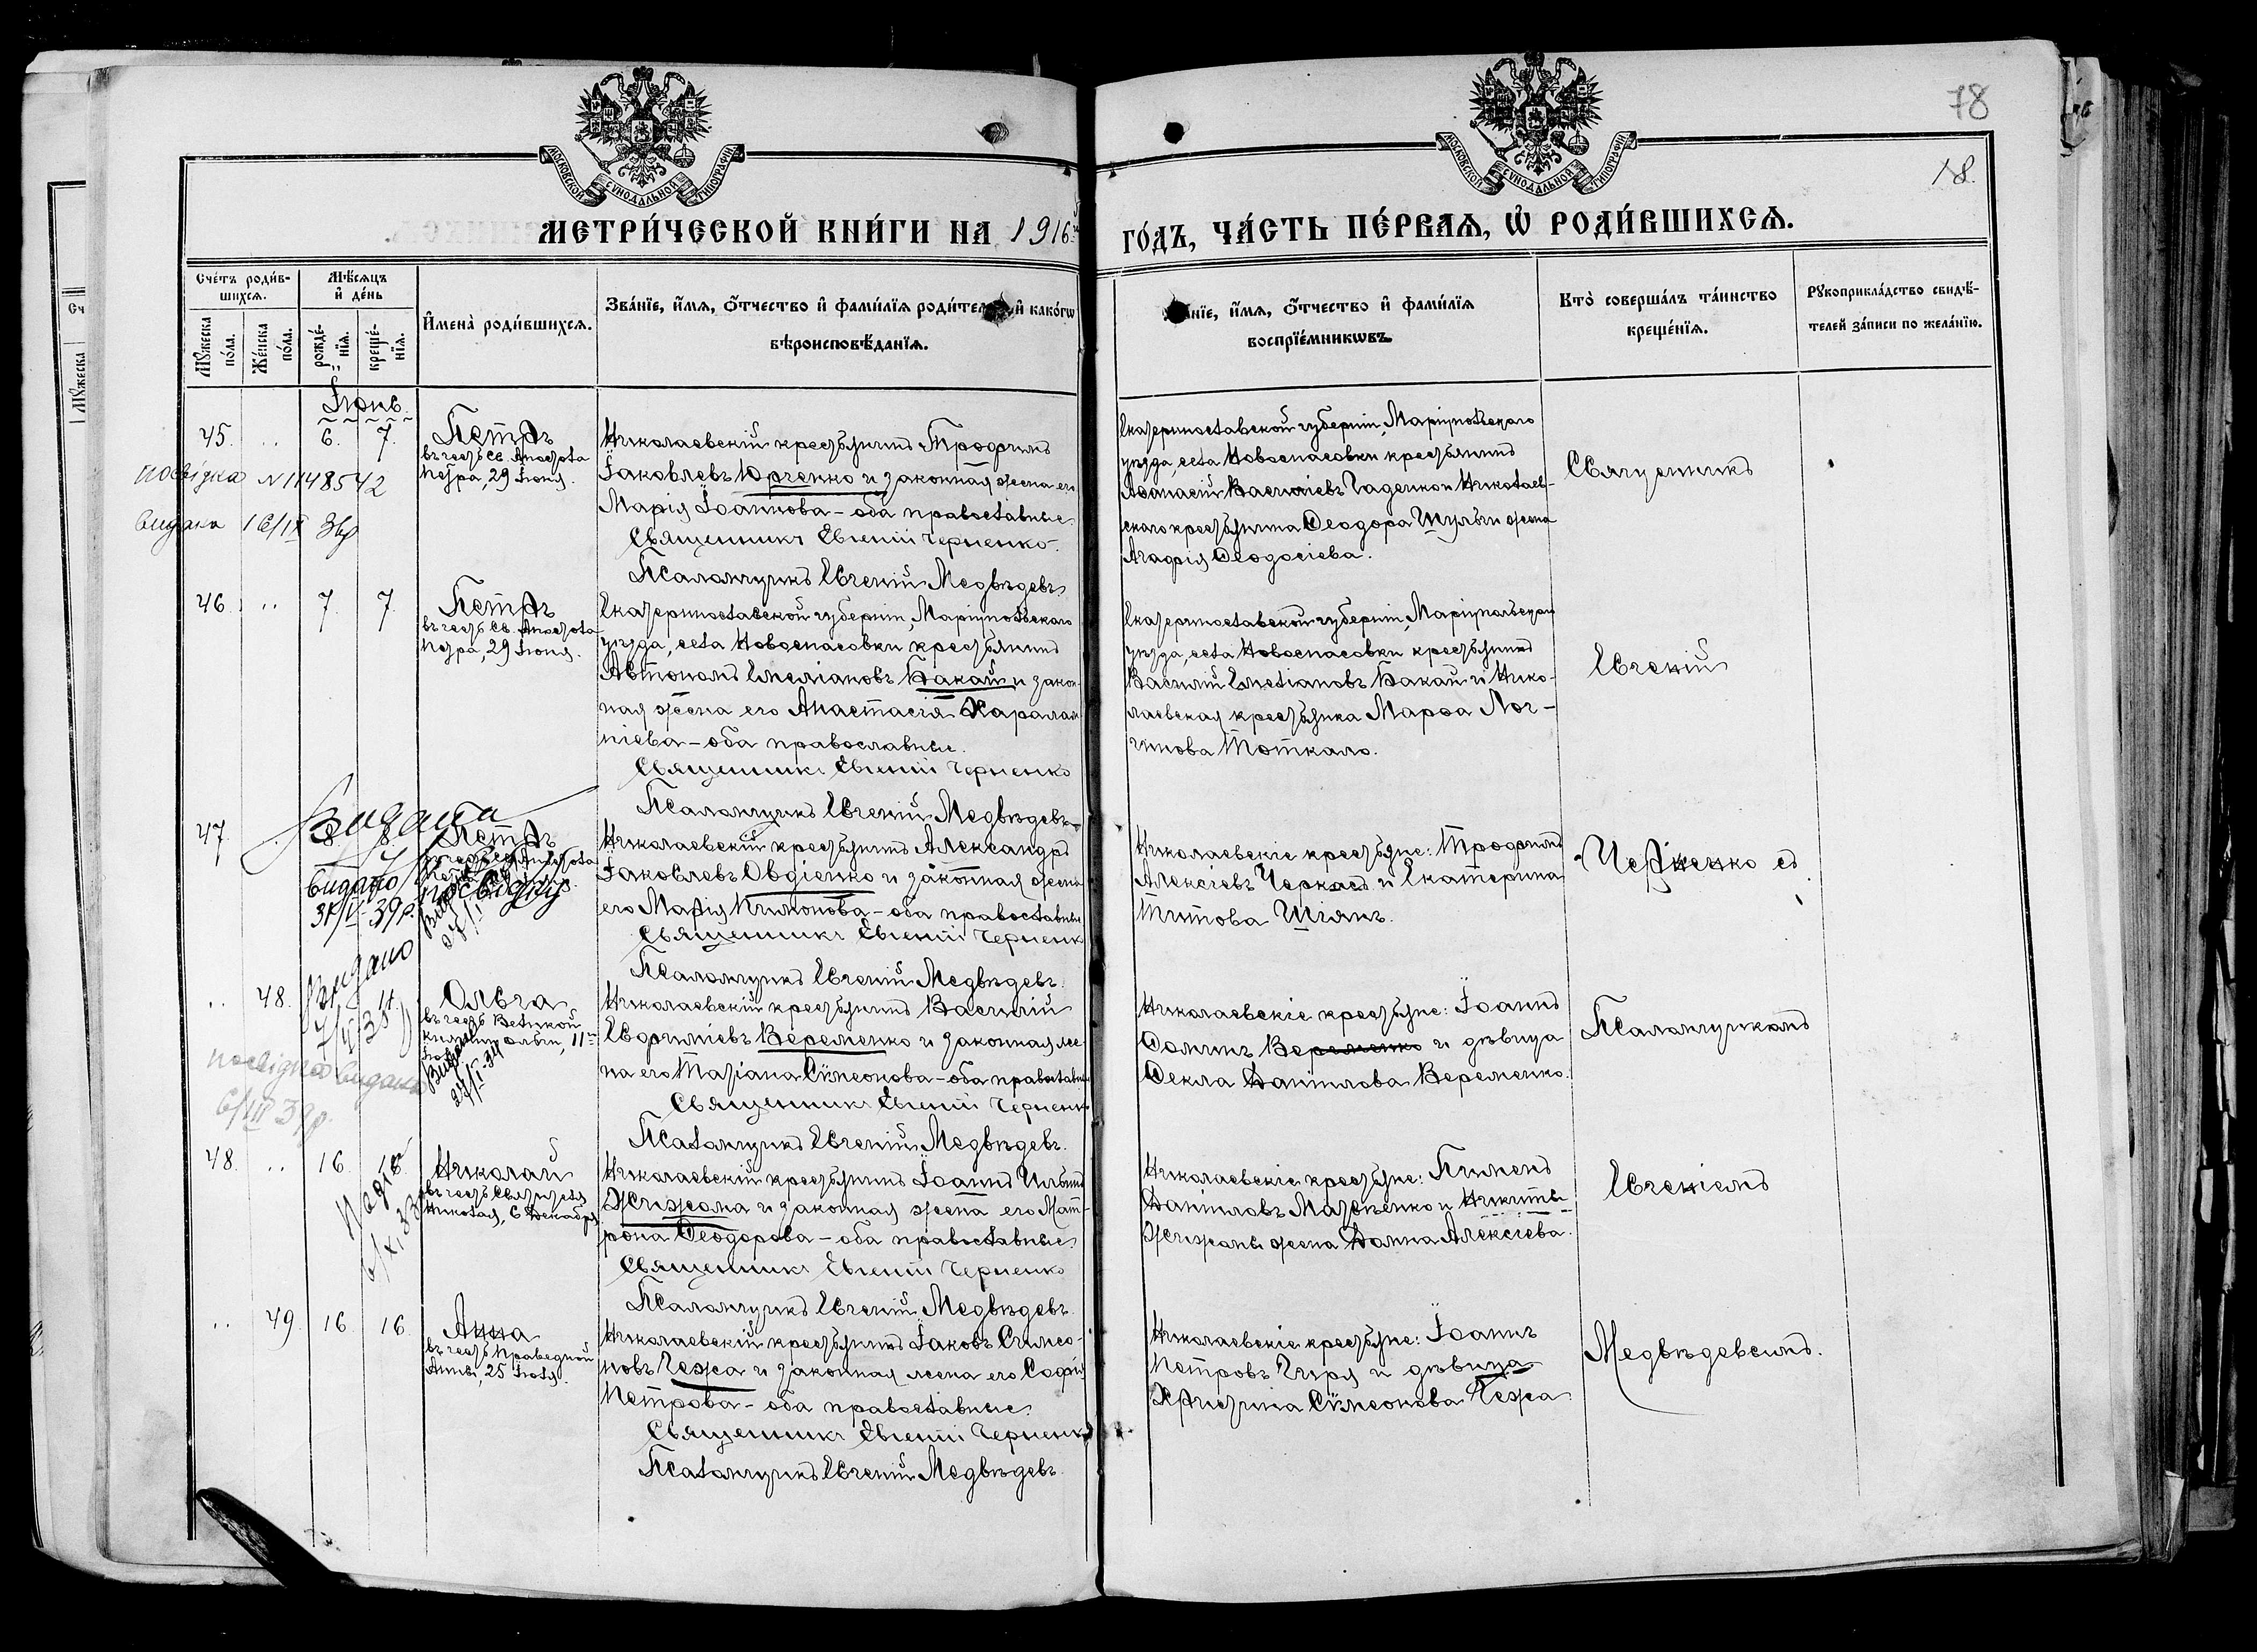 78
18.
МОСКОВСКОЙ СУНОДАЛЬНОЙ ТИПОГРАФІИ
МОСКОВСКОЙ СУНОДАЛЬНОЙ ТИПОГРАФІИ
МЕТРИ́ЧЕСКОЙ КНИ́ГИ НА 1916
ГО́ДЪ, ЧА́СТЬ ПЕ́РВАѦ, Ѡ҆ РОДИ́ВШИХСѦ.
Сче́тъ роди́в-
шихсѧ.
Мѣ́сѧцъ
и҆ де́нь
Мꙋ́жеска
по́ла.
Же́нска
по́ла.
рожде́-
нїѧ.
креще́-
нїѧ.
И҆мена̀ роди́вшихсѧ.
Зва́нїе, и҆́мѧ, ѻ҆́тчество и҆ фами́лїѧ и҆ како́гѡ
вѣроисповѣ́данїѧ.
и҆́мѧ, ѻ҆́тчество и҆ фами́лїѧ
воспрїе́мникѡвъ.
Кто̀ соверша́лъ та́инство
креще́нїѧ.
Рꙋкоприкла́дство свидѣ́-
телей за́писи по жела́нїю.
Іюнь.
45. .. 6. 7. Петръ
въ честь Св. Апостола
Петра, 29 Іюня.
посвідка N 1148542
видана 16/IX 36р
Николаевскій крестьянинъ Трофимъ
Іаковлевъ Юрченко и законная жена его
Марія Іоаннова – оба православные.
Священникъ Евгеній Черненко.
Псаломщикъ Евгеній Медвѣдевъ.
Екатеринославской губерніи, Маріупольскаго
уѣзда, села Новоспасовки крестьянинъ
Аѳанасій Василіевъ Гаденко и Николаев-
скаго крестьянина Ѳеодора Шульги жена
Агафія Ѳеодосіева.
Священникъ
46. .. 7. 7. Петръ
въ честь Св. Апостола
Петра, 29 Іюня.
Екатеринославской губерніи, Маріупольскаго
уѣзда, села Новоспасовки крестьянинъ
Автономъ Емеліановъ Бакай и закон-
ная жена его Анастасія Харалам-
піева – оба православные.
Священникъ Евгеній Черненко
Псаломщикъ Евгеній Медвѣдевъ.
Екатеринославской губерніи, Маріупольскаго
уѣзда, села Новоспасовки крестьянинъ
Василій Емеліановъ Бакай и Нико-
лаевская крестьянка Марѳа Лог-
гинова Тоткало.
Евгеній
47. 8. 8. Петръ
Видано
31/V-39р.
Николаевскій крестьянинъ Александръ
Іаковлевъ Овдіенко и законная жена
его Марія Пимонова – оба православные
Священникъ Евгеній Черненко
Псаломщикъ Евгеній Медвѣдевъ.
Николаевскіе крестьяне: Трофимъ
Алексіевъ Черкасъ и Екатерина
Титова Шіянъ.
Черненко съ
.. 48. 11. 11. Ольга
въ честь Великой
княгини Ольги, 11
Видано
посвідка видана
6/III 39р.
Николаевскій крестьянинъ Василій
Евфиміевъ Веременко и законная же-
на его Татіана Сѵмеонова – оба православные
Священникъ Евгеній Черненко
Псаломщикъ Евгеній Медвѣдевъ.
Николаевскіе крестьяне: Іоаннъ
Ѳоминъ Веременко и дѣвица
Ѳекла Даніилова Веременко.
Псаломщикомъ
48. .. 16. 16. Николай
въ честь Святителя
Николая, 6 Декабря
Николаевскій крестьянинъ Іоаннъ Ильинъ
Жижома и законная жена его Мат-
рона Ѳеодорова – оба православные.
Священникъ Евгеній Черненко
Псаломщикъ Евгеній Медвѣдевъ.
Николаевскіе крестьяне: Пименъ
Даніиловъ Мазненко и Никиты
Жижомы жена Домна Алексіева.
Евгеніемъ
.. 49. 16. 16. Анна
въ честь праведной
Анны, 25 Іюля.
Николаевскій крестьянинъ Іаковъ Симео-
новъ Чежа и законная жена его Софія
Петрова – оба православные.
Священникъ Евгеній Черненко
Псаломщикъ Евгеній Медвѣдевъ.
Николаевскіе крестьяне: Іоаннъ
Петровъ Гиря и дѣвица
Христина Сѵмеонова Чежа.
Медвѣдевымъ.